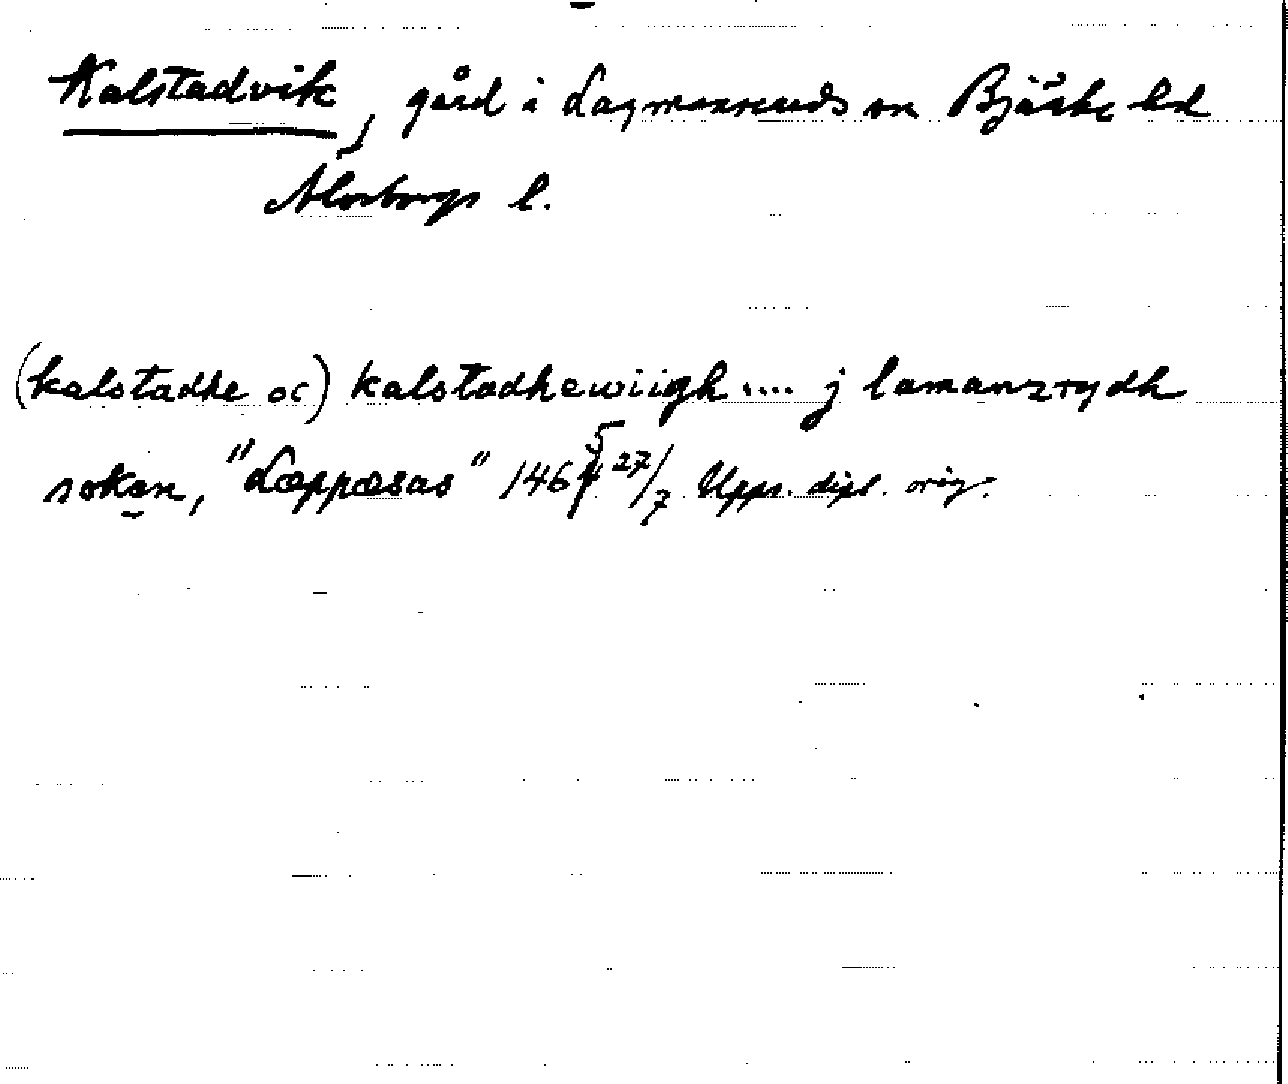 Kalstadvik, gård i Lagmansereds sn Bjärke hd
Älvsborgs l.
(kalstadhe oc) kalstadhewiigh .... j lamanzrydh
soken, "Læppæsas" 1465 27/7 Upps. dipl. orig.